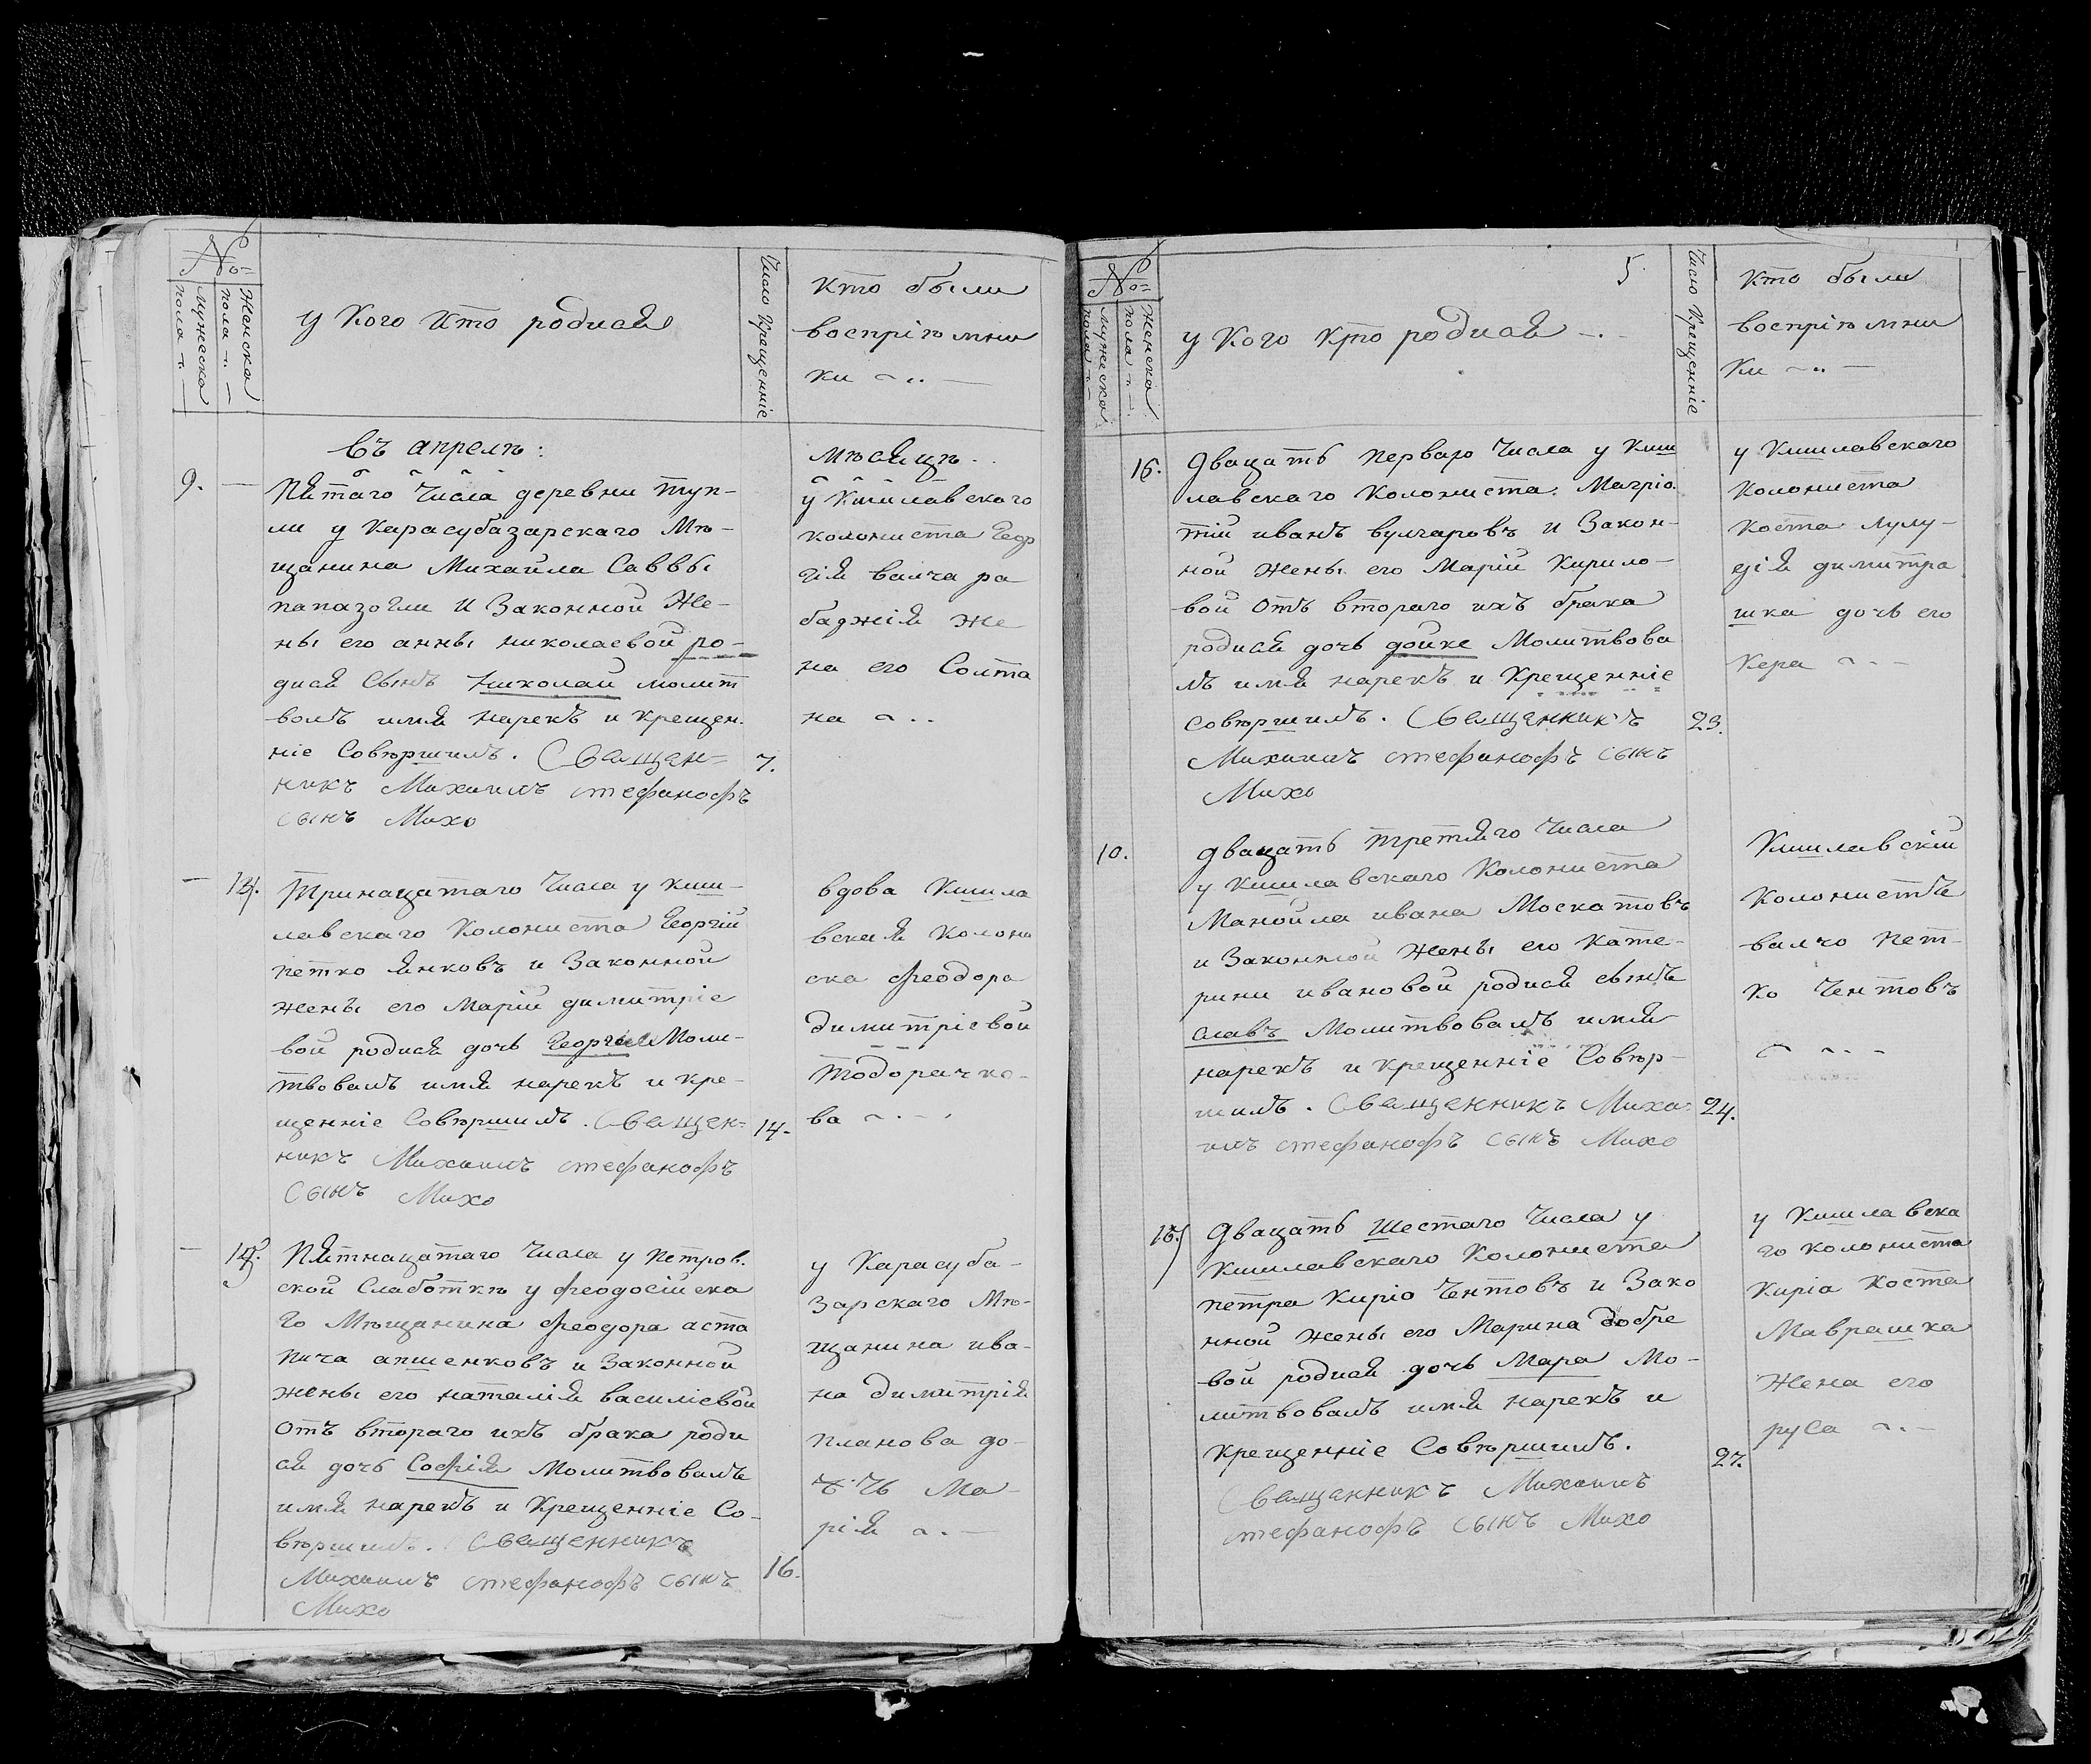 №
Мужеска пола
Женска пола
у Кого кто родися
Число Крещенніе
кто были
воспріѣмни
ки
въ апрелѣ:
мѣсяцѣ
9.
Пятаго Числа деревни туп-
ли у Карасубазарскаго Мѣ-
щанина Михайла Саввы
папазогли и Законной Же-
ны его анны николаевой ро-
дися Сынъ николай молит
вовалъ имя нарекъ и крещен.
ніе Совѣршилъ. Сващен=
никъ Михаилъ стефанофъ
сынъ Михо
7.
у Кишлавскаго
колониста Геор
гія валча ра
баджія же
на его Солта
на
14.
Тринацатаго Числа у киш-
лавскаго Колониста Георгій
петко янковъ и Законной
жены его Маріи димитріе
вой родися дочь Георгіе Моли-
твовалъ имя нарекъ и кре-
щенніе Совѣршилъ. Сващен=
никъ Михаилъ стефанофъ
Сынъ Михо
14.
вдова Кишла
вская колони
ска феодора
димитріевой
Тодорачко-
ва
15.
Пятнацатаго Числа у петров.
ской Слаботкѣ у феодосійска
го Мѣщанина феодора аста
пича апшенковъ и Законной
жены его наталія василіевой
отъ втораго ихъ брака роди
ся дочь Софія Молитвовалъ
имя нарекъ и Крещенніе Со-
вѣршилъ. Сващенникъ
Михаилъ стефанофъ сынъ
Михо
16.
у Карасуба-
зарскаго Мѣ-
щанина ива-
на димитрія
планова до-
чь Ма-
рія
№
Мужеска пола
Женска пола
5.
у Кого кто родися
Число Крещенніе
кто были
воспріѣмни
Ки
16.
Двацать перваго Числа у Киш
лавскаго Колониста. Магріо.
тій иванъ вулгаровъ и Закон-
ной жены его Маріи Кирило-
вой отъ втораго ихъ брака
родися дочь дойке Молитвова
лъ имя нарекъ и Крещенніе
совѣршилъ. Сващенникъ
Михаилъ стефанофъ сынъ
Михо
23.
у Кишлавскаго
колониста
Коста лулу-
дія димитра
шка дочь его
Кера
10.
двацать третяго Числа
у Кишлавскаго Колониста
Манойла ивана Москатовъ
и Законной Жены его Кате-
рини ивановой родися сынъ
славъ Молитвовалъ имя
нарекъ и крещенніе Совѣр-
шилъ. Сващенникъ Миха-
илъ стефанофъ сынъ Михо
24.
Кишлавскій
Колонистъ
валчо пет-
ко Чентовъ
Двацать Шестаго Числа у
Кишлавскаго Колониста
петра Киріо Чентовъ и Зако
нной жены его Марина добре
вой родися дочь Мара Мо-
литвовалъ имя нарекъ и
Крещенніе Совѣршилъ.
Сващенникъ Михаилъ
стефанофъ сынъ Михо
27.
у Кишлавска
го колониста
Киріа Коста
Маврашка
Жена его
руса